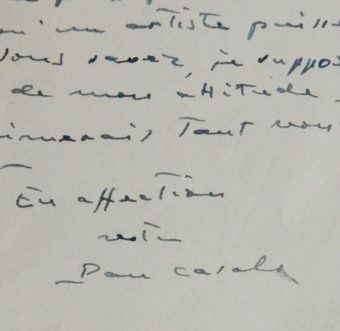 qu'un artiste puisse
Vous savez, je suppos
de mon attitude
imerais tant vous
En affection
votre
Pau Casals